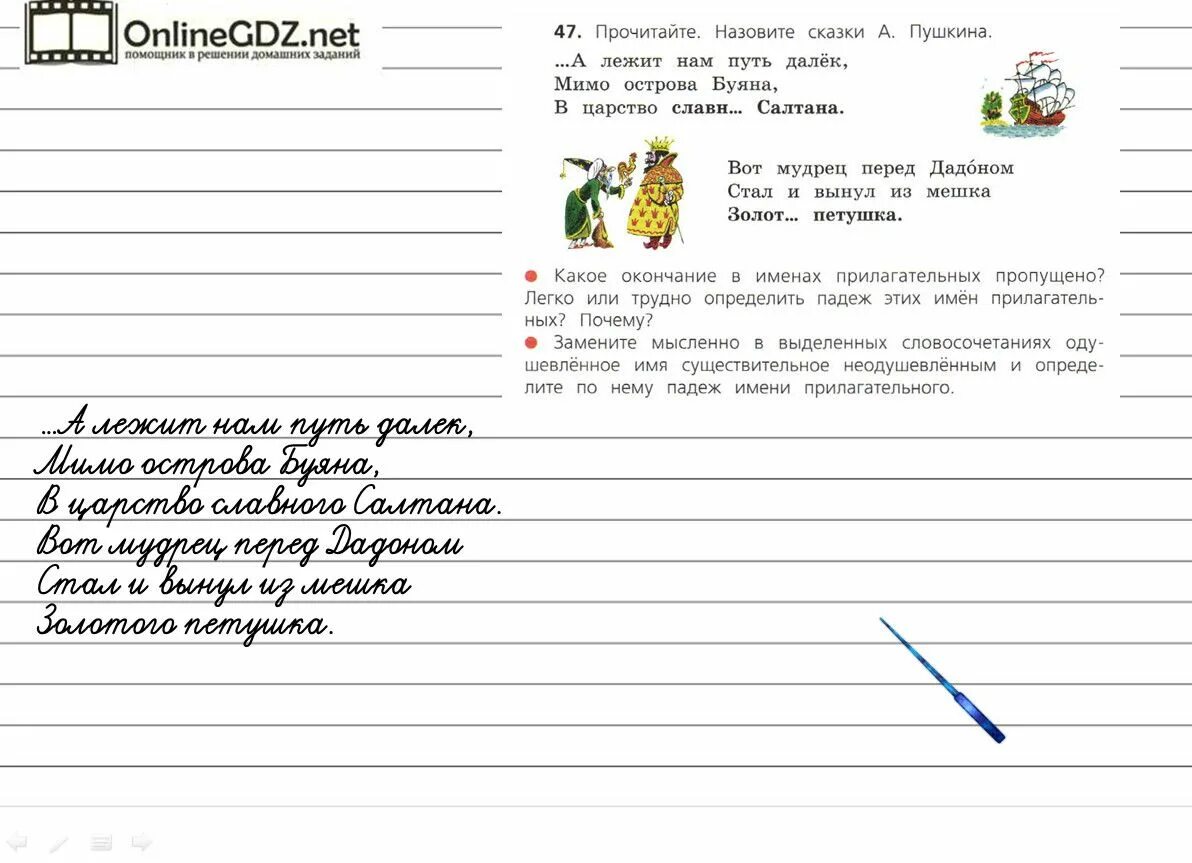 OnlineGDZ.net
помощник в решении домашних заданий
47. Прочитайте. Назовите сказки А. Пушкина.
...А лежит нам путь далёк,
Мимо острова Буяна,
В царство славн... Салтана.
Вот мудрец перед Дадо́ном
Стал и вынул из мешка
Золот... петушка.
Какое окончание в именах прилагательных пропущено?
Легко или трудно определить падеж этих имён прилагатель-
ных? Почему?
Замените мысленно в выделенных словосочетаниях оду-
шевлённое имя существительное неодушевлённым и опреде-
лите по нему падеж имени прилагательного.
...А лежит нам путь далек,
Мимо острова Буяна,
В царство славного Салтана.
Вот мудрец перед Дадоном
Стал и вынул из мешка
Золотого петушка.